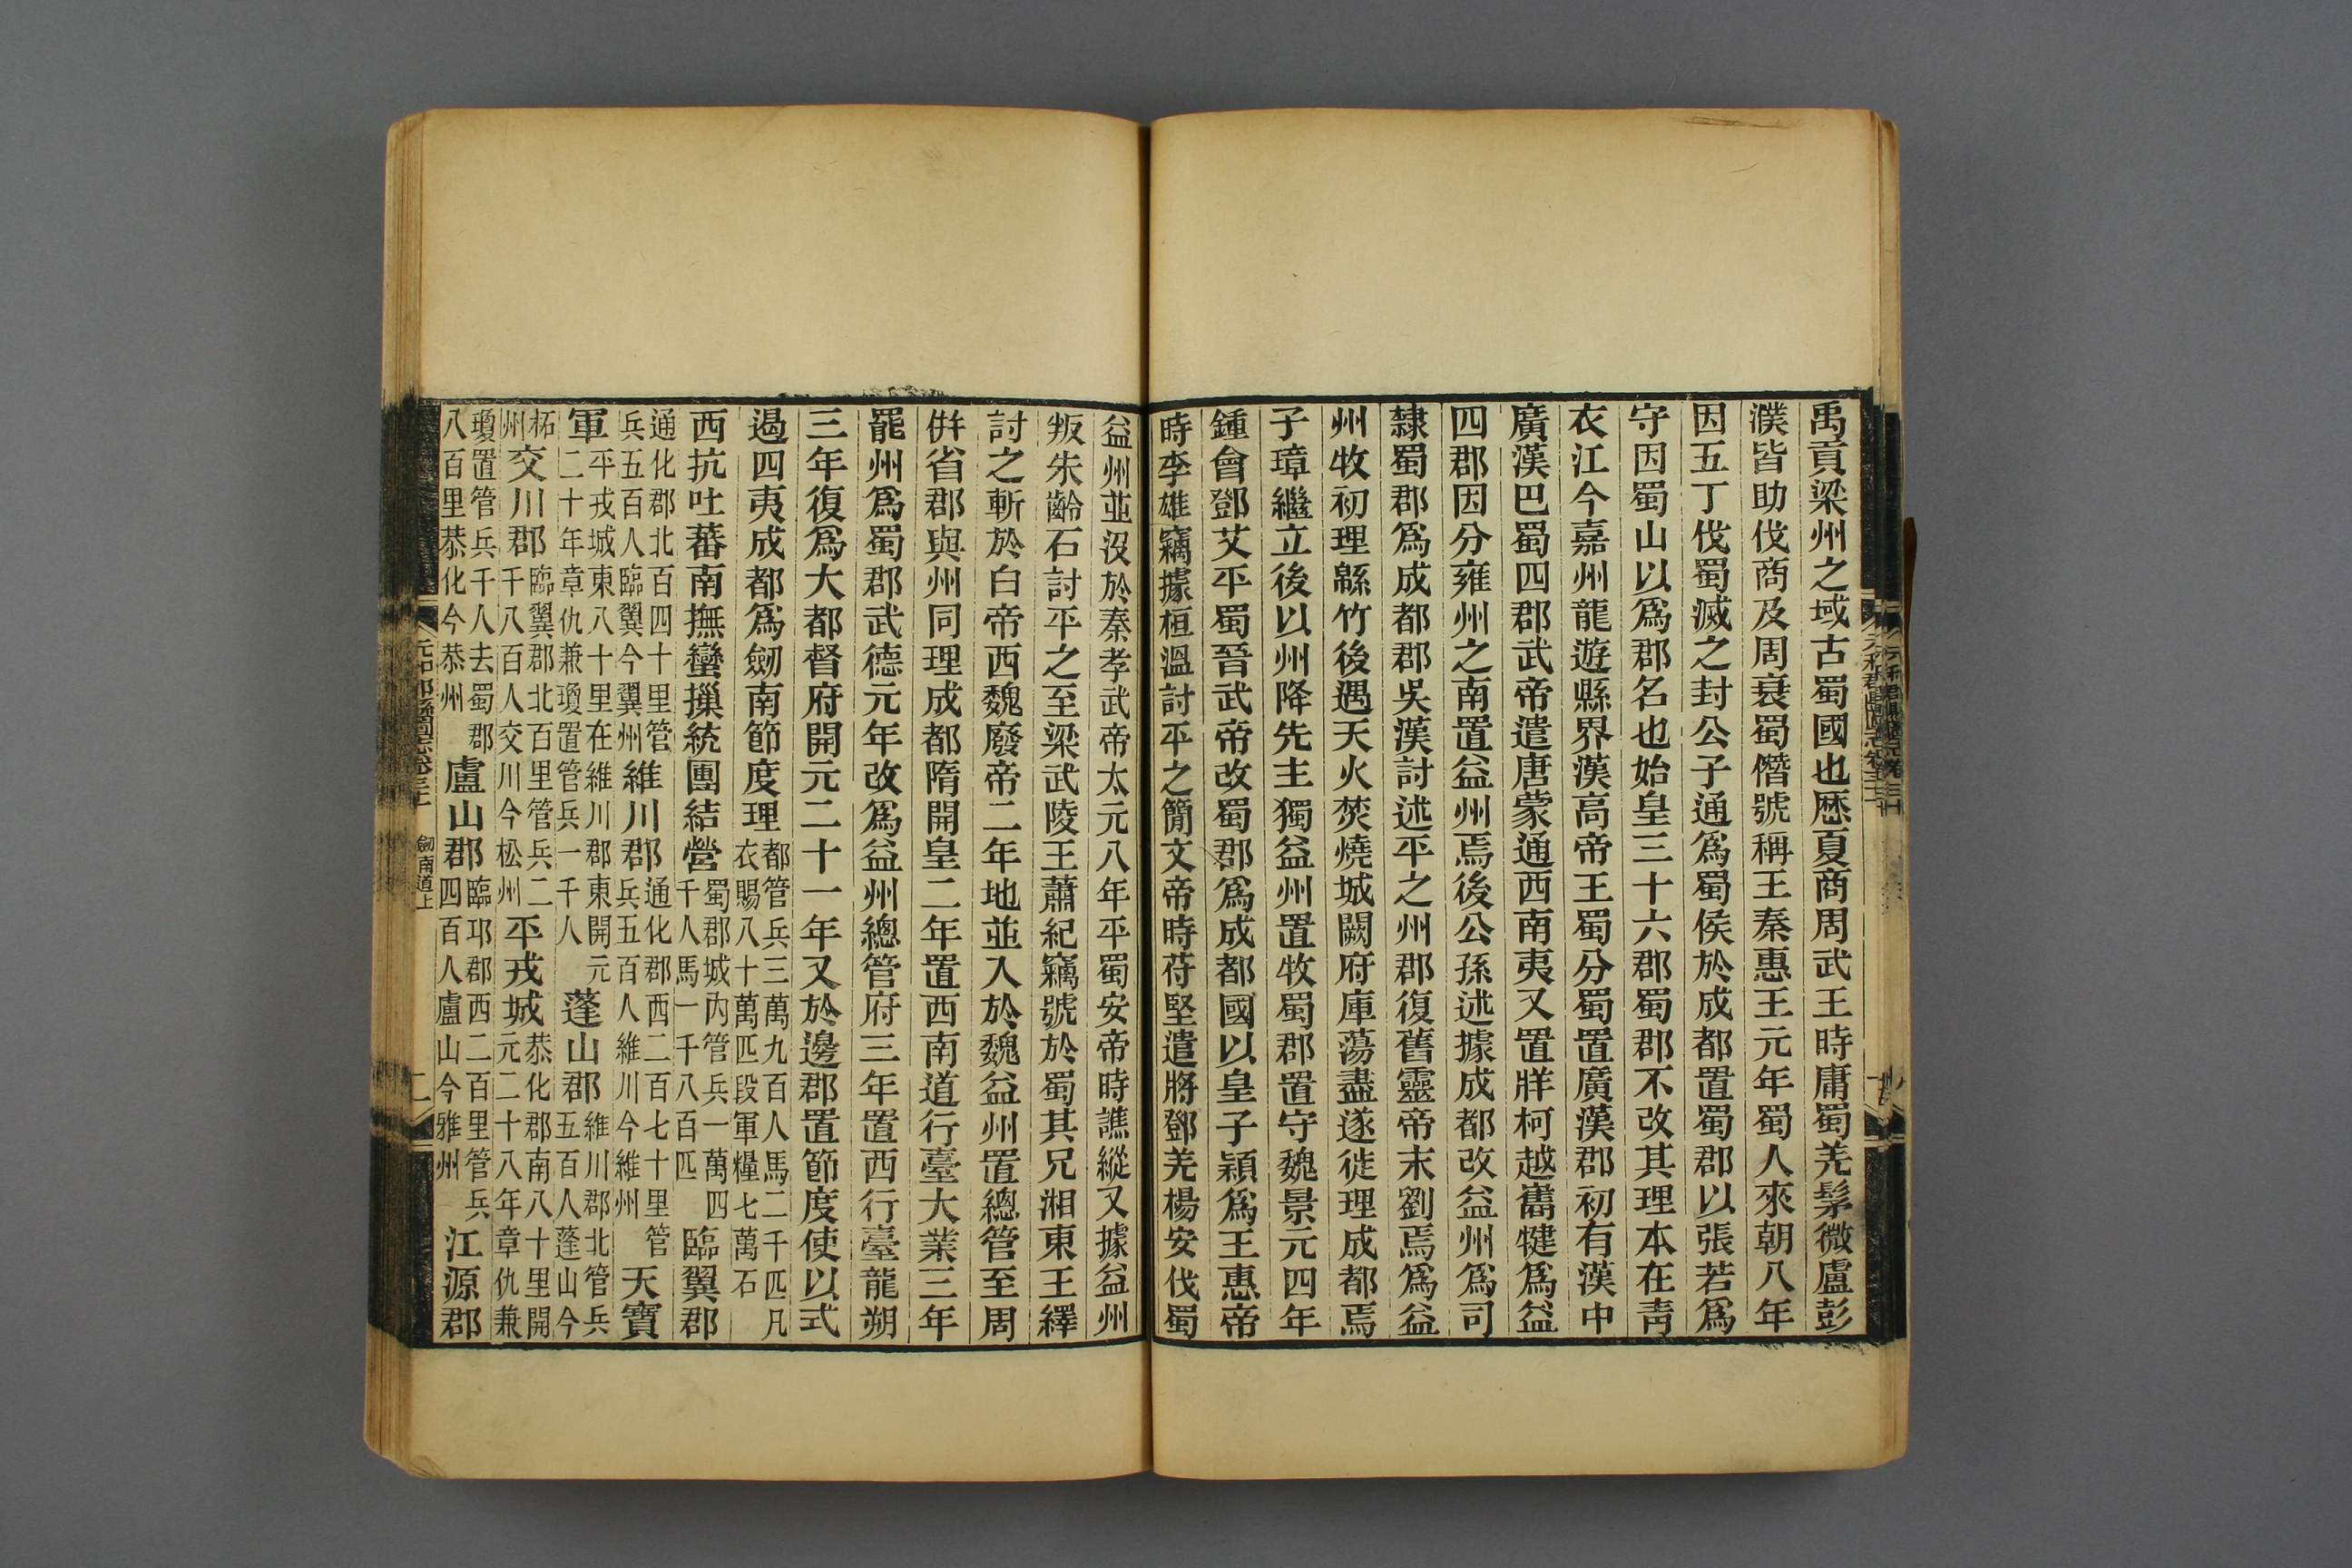 禹貢梁州之域古蜀國也歷夏商周武王時庸蜀羌髳微盧彭
濮皆助伐商及周衰蜀僭號稱王秦惠王元年蜀人來朝八年
因五丁伐蜀滅之封公子通爲蜀侯於成都置蜀郡以張若爲
守因蜀山以爲郡名也始皇三十六郡蜀郡不改其理本在靑
衣江今嘉州龍遊縣界漢高帝王蜀分蜀置廣漢郡初有漢中
廣漢巴蜀四郡武帝遣唐蒙通西南夷又置牂柯越巂犍爲益
四郡因分雍州之南置益州焉後公孫述據成都改益州爲司
隸蜀郡爲成都郡吳漢討述平之州郡復舊靈帝末劉焉爲益
州牧初理緜竹後遇天火焚燒城闕府庫蕩盡遂徙理成都焉
子璋繼立後以州降先主獨益州置牧蜀郡置守魏景元四年
鍾會鄧艾平蜀晉武帝改蜀郡爲成都國以皇子穎爲王惠帝
時李雄竊據桓溫討平之簡文帝時苻堅遣將鄧羌楊安伐蜀
益州並沒於秦孝武帝太元八年平蜀安帝時譙縱又據益州
叛朱齡石討平之至梁武陵王蕭紀竊號於蜀其兄湘東王繹
討之斬於白帝西魏廢帝二年地並入於魏益州置總管至周
倂省郡與州同理成都隋開皇二年置西南道行臺大業三年
罷州爲蜀郡武德元年改爲益州總管府三年置西行臺龍朔
三年復爲大都督府開元二十一年又於邊郡置節度使以式
遏四夷成都爲劒南節度理都管兵三萬九百人馬二千匹凡衣賜八十萬匹段軍糧七萬石
西抗吐蕃南撫蠻獠統團結營蜀郡城內管兵一萬四千人馬一千八百匹臨翼郡
通化郡北百四十里管兵五百人臨翼今翼州維川郡通化郡西二百七十里管兵五百人維川今維州天寶
軍平戎城東八十里在維川郡東開元二十年章仇兼瓊置管兵一千人蓬山郡維川郡北管兵五百人蓬山今
柘州交川郡臨翼郡北百里管兵二千八百人交川今松州平戎城恭化郡南八十里開元二十八年章仇兼
瓊置管兵千人去蜀郡八百里恭化今恭州盧山郡臨邛郡西二百里管兵四百人盧山今雅州江源郡
元和郡縣圖志卷三十一
劒南道上
二